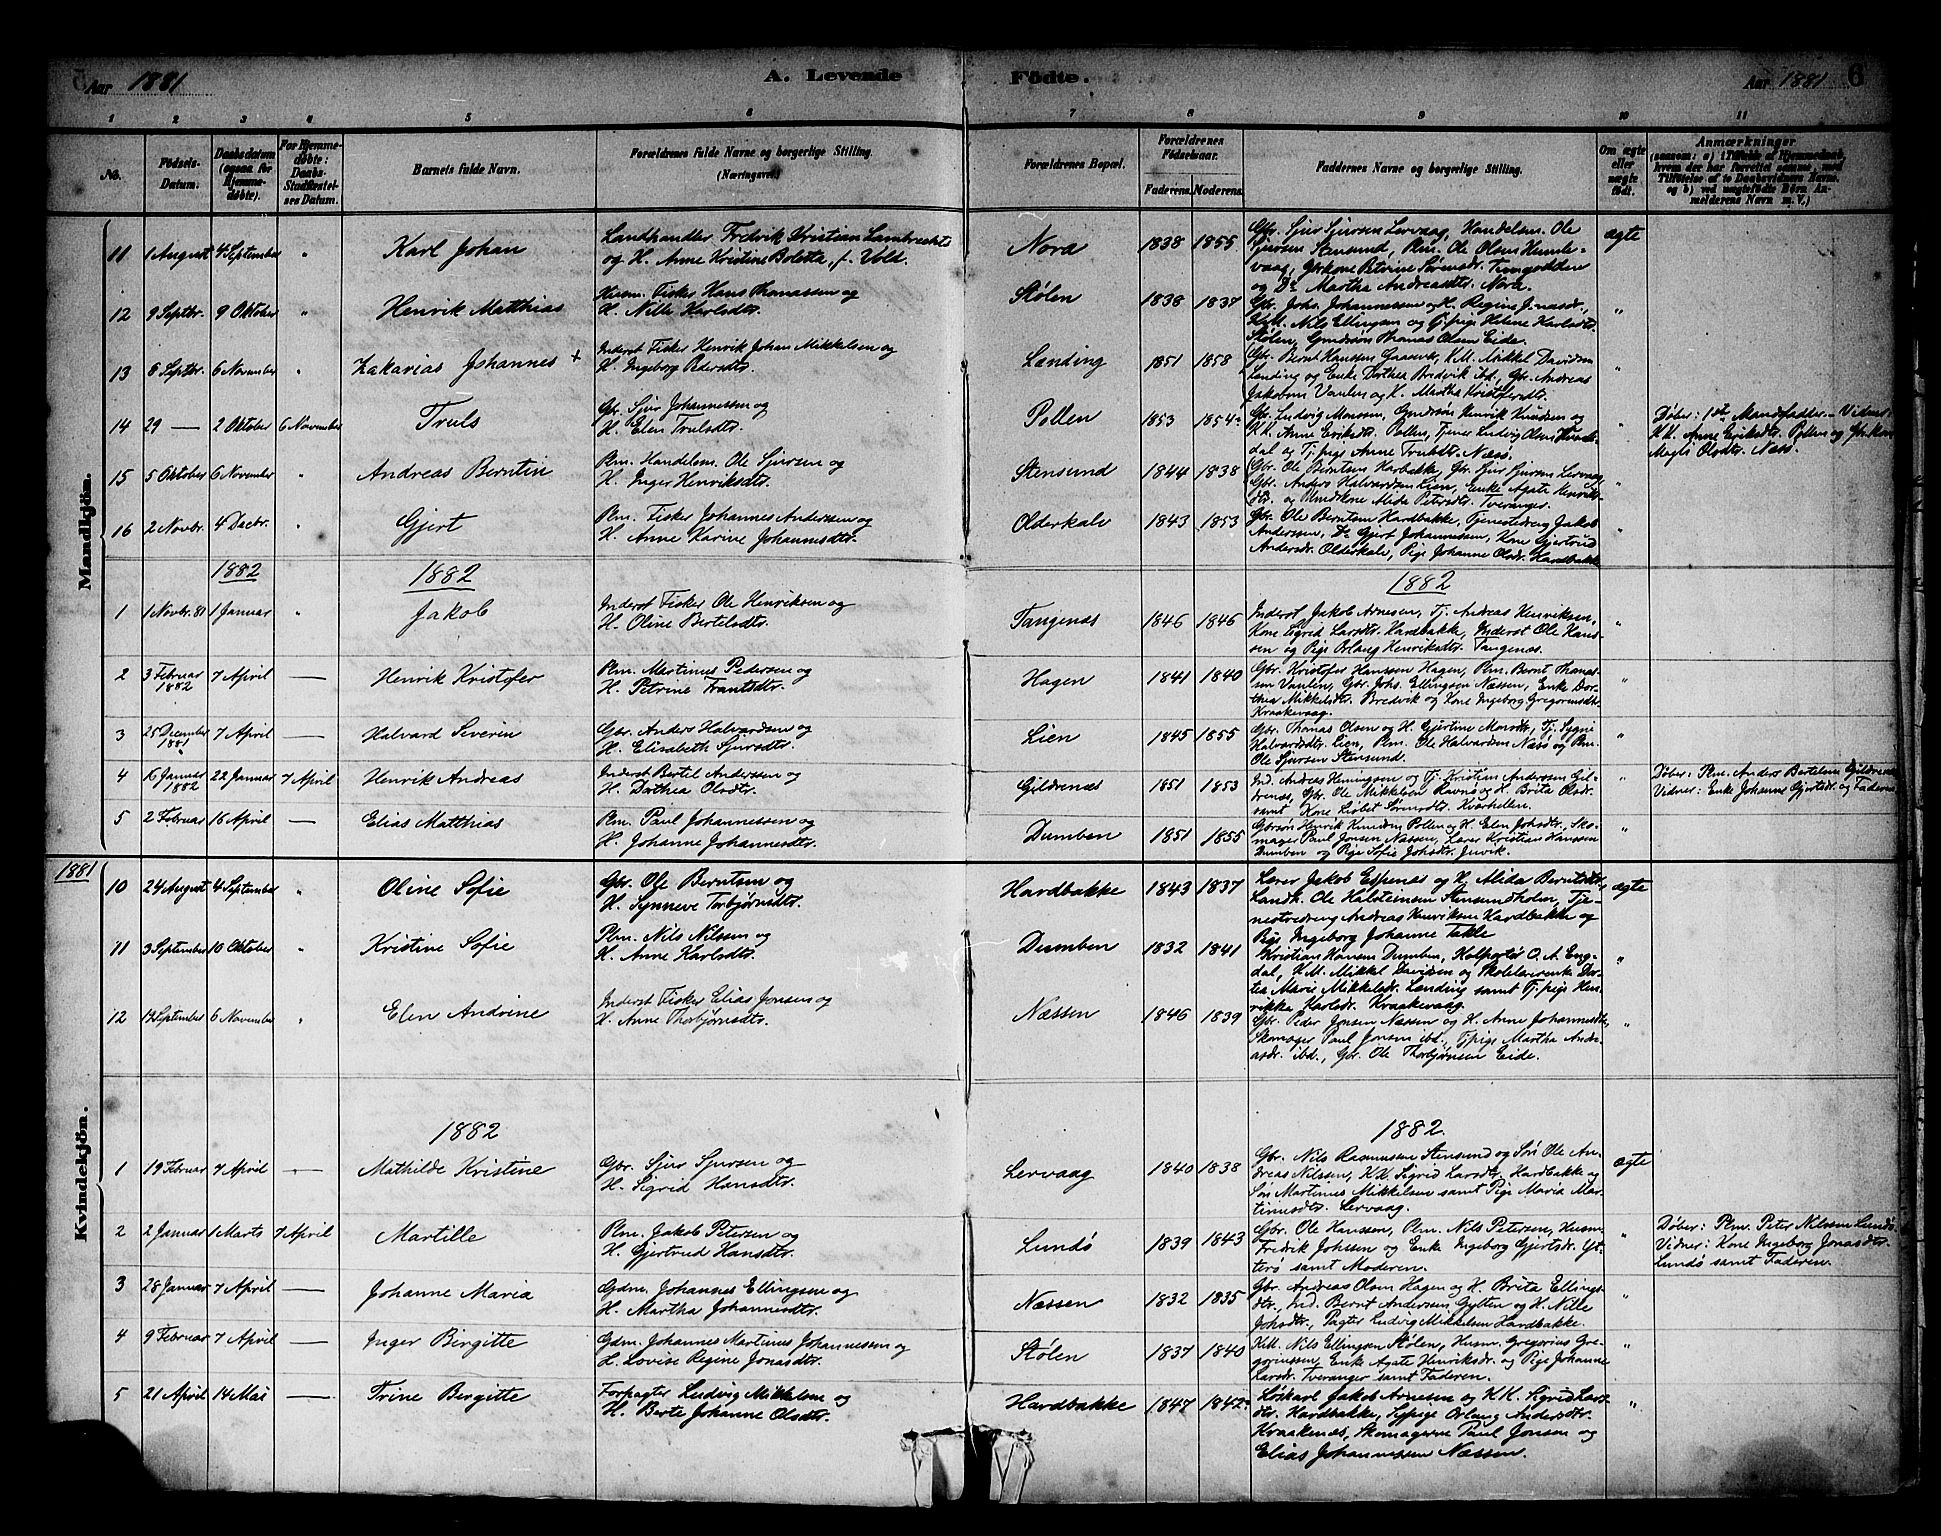 5 Aar 1881 A. Levende Födte. Aar 1881 6
1 2 3 4 5 6 7 8 9 10 11
No. Födsels-Datum. Daabsdatum (ogsaa for Hjemmedöbte). For Hjemmedöbte: Daabs-Stadfæstelses Datum. Barnets fulde Navn. Forældrenes fulde Navne og borgerlige Stilling. (Næringsvei.) Forældrenes Bopæl. Forældrenes Födselsaar. Faderens. Moderens. Faddernes Navne og borgerlige Stilling. Om ægte eller uægte födt. Anmærkninger (saasom: a) i Tilfælde af Hjemmedaab, hvem der har forrettet samme, med Tilföielse af to Daabsvidners Navne, og b) ved uægtefödte Börn Anmelderens Navn m. V.)
Mandkjön.
11 1 August 4 September " Karl Johan Landhandler Fredrik Kristian Lambrechts
og H. Anne Kristine Boletta, f. Vold. Nora 1838 1855 Gbr. Sjur Sjursen Lervaag, Handelsm. Ole
Sjursen Stensund, Plm. Ole Olsen Humle-
vaag, Gbrkone Petrine Sørensdr. Trovaagodden
og Do Martha Andreasdtr. Nora. ægte
12 9 Septbr. 9 Oktober " Henrik Matthias Husm. Fisker Hans Thomassen og
H. Nille Karlsdtr. Stølen 1838 1837 Gbr. Johs. Johannessen og H. Regine Jonasdr.,
K.M. Nils Ellingsen og Tj.pige Helene Karlsdtr.
Stølen, Gmdssøn Thomas Olsen Eide. "
13 6 Septbr. 6 November " Zakarias Johannes + Inderst Fisker Henrik Johan Mikkelsen og
H. Ingeborg Pedersdtr. Landing 1851 1858 Gbr. Bernt Hanssen Gaasvær, K.M. Mikkel Davidsen
Landing og Enke Dorthea Bredvik ibd., Gbr. Andreas
Jakobsen Vaulen og K. Martha Kristofersdtr. "
14 29 — 2 Oktober 6 November Truls Gbr. Sjur Johannessen og
H. Elen Trulsdtr. Pollen 1853 1854 Gbr. Ludvig Monsen, Gmdssøn Henrik Knudsen og
K.K. Anne Eriksdtr. Pollen, Tjener Ludvig Olsen
dal og Tj.pige Anne Trulsdtr. Næss. " Døber: 1ste Mandsfadder. — Vidner:
K.K. Anne Eriksdtr. Pollen og Gbr.kone
Magli Olsdtr. Næss.
15 5 Oktober 6 November " Andreas Berntin Plm. Handelsm. Ole Sjursen og
H. Inger Henriksdtr. Stensund 1844 1838 Gbr. Ole Berntsen Harbakke, Gbr. Sjur Sjursen Lervaag,
Gbr. Anders Halvardsen Lien, Enke Agate Henriks-
dtr. og Plmdkone Alida Petersdtr. Tveranger. "
16 2 Novbr. 4 Decbr. " Gjert Plm. Fisker Johannes Anderssen og
H. Anne Karine Johannesdtr. Olderkalv 1843 1853 Gbr. Ole Berntsen Hardbakke, Tjenestedreng Jakob
Anderssen, Do Gjert Johannessen, Kone Gjertrud
Andersdr. Olderkalv, Pige Johanne Olsdr. Hardbakke "
1882 1882 1882
1 1 Novbr. 81 1 Januar " Jakob Inderst Fisker Ole Henriksen og
H. Oline Bertelsdtr. Tangenæs 1846 1846 Inderst Jakob Arnesen, Tj. Andreas Henriksen,
Kone Sigrid Larsdtr. Hardbakke, Inderst Ole Hans-
sen og Pige Orlaug Henriksdtr. Tangenæs. "
2 3 Februar 1882 7 April — Henrik Kristofer Plm. Martinus Pedersen og
H. Petrine Frantsdtr. Hagen 1841 1840 Gbr. Kristofer Hanssen Hagen, Plm. Bernt Thomas-
sen Vaulen, Gbr. Johs. Ellingsen Næssen, Enke Dor-
thea Mikkelsdtr. Bredvik og Kone Ingeborg Gregoriusdtr.
Kraakevaag. "
3 25 December 1881 7 April — Halvard Severin Gbr. Anders Halvardsen og
H. Elisabeth Sjursdtr. Lien 1845 1855 Gbr. Thomas Olsen og H. Gjertine Monsdtr., Tj. Sygni
Halvardsdtr. Lien, Plm. Ole Halvardsen Næss og Plm.
Ole Sjursen Stensund. "
4 16 Januar 1882 22 Januar 7 April Henrik Andreas Inderst Bertel Anderssen og
H. Dorthea Olsdtr. Gildrenæs 1851 1853 Ind. Andreas Henningsen og Tj. Kristian Andersen Gil-
drenæs, Gbr. Ole Mikkelsen Ravnø og H. Brita Olsdr.
samt Kone Lisbet Sørensdtr. Kværhellen. " Døber: Plm. Anders Bertelsen Gildrenæs
Vidner: Enke Johanne Gjertsdr. og Faderen
5 2 Februar 16 April — Elias Matthias Plm. Paul Johannessen og
H. Johanne Johannesdtr. Dumben 1851 1855 Gbrsøn Henrik Knudsen Pollen og H. Elen Johsdtr., Sko-
mager Paul Jonsen Næssen, Lærer Kristian Hanssen
Dumben og Pige Sofie Johsdtr. "
Kvindekjön.
1881
10 24 August 4 September " Oline Sofie Gbr. Ole Berntsen og
H. Synneve Torbjørnsdtr. Hardbakke 1843 1837 Lærer Jakob Espenæs og H. Alida Berntsdtr.,
Landh. Ole Halsteinsen Stensundholm, Tje-
nestedreng Andreas Henriksen Hardbakke og
Pige Ingeborg Johanne Takle ægte
11 3 September 10 Oktober " Kristine Sofie Plm. Nils Nilssen og
H. Anne Karlsdtr. Dumben 1832 1841 Kristian Hansen Dumben, Kolportør O. A. Eng-
dal, K.M. Mikkel Davidsen og Skolelærerenke Dor-
tea Marie Mikkelsdr. Landing samt Tj.pige Hen-
rikke Karlsdr. Kraakevaag. "
12 14 September 6 November " Elen Andrine Inderst Fisker Elias Jonsen og
H. Anne Thorbjørnsdtr. Næssen 1846 1839 Gbr. Peder Jonsen Næssen og H. Anne Johannesdtr.,
Skomager Paul Jonsen ibd., Tj.pige Martha Andre-
asdr. ibd., Gbr. Ole Thorbjørnsen Eide. "
1882 1882.
1 19 Februar 7 April — Mathilde Kristine Gbr. Sjur Sjursen og
H. Sigrid Hansdtr. Lervaag 1840 1838 Gbr. Nils Rasmussen Stensund og Søn Ole An-
dreas Nilssen, K.K. Sigrid Larsdtr. Hardbakke og
Søn Martinus Mikkelsen samt Pige Maria Mar-
tinusdtr. Lervaag. ægte
2 2 Januar 1 Marts 7 April Martille Plm. Jakob Petersen og
H. Gjertrud Hansdtr. Lundø 1839 1843 Gbr. Ole Hanssen, Plm. Nils Petersen, Husm.
Fredrik Johssen og Enke Ingeborg Gjertsdr. Yt-
terø samt Moderen. " Døber: Plm. Peter Nilssen Lundø
Vidner: Kone Ingeborg Jonasdtr.
Lundø samt Faderen.
3 28 Januar 7 April — Johanne Maria Gdm. Johannes Ellingsen og
H. Martha Johannesdtr. Næssen 1832 1835 Gbr. Andreas Olsen Hagen og H. Brita Ellings-
dtr., Ind. Bernt Andersen Gylten og H. Nille
Johsdtr., Pagter Ludvig Mikkelsen Hardbakke. "
4 9 Februar 7 April — Inger Birgitte Gdm. Johannes Martinus Johannessen og
H. Lovise Regine Jonasdtr. Stølen 1837 1840 K.M. Nils Ellingsen Stølen, Husm. Gregorius Gre-
goriussen, Enke Agate Henriksdr. og Pige Johanne
Larsdr. Tveranger samt Faderen. "
5 21 April 14 Mai — Trine Birgitte Forpagter Ludvig Mikkelsen og
H. Berte Johanne Olsdtr. Hardbakke 1847 1842 Løskarl Jakob Arnesen og K.K. Sigrid Lars-
dtr. Hardbakke, Tj.pige Orlaug Andersdtr.
Kraakenæs, Skomagerne Paul Jonsen og
Elias Johannessen Næssen. "